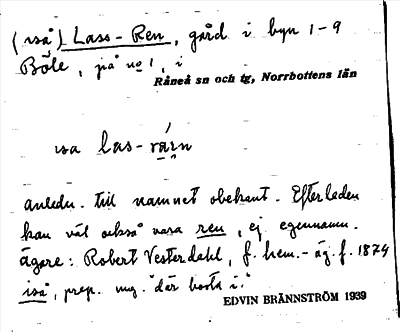 (iså) Lass-Ren, gård i byn 1-9
Böle, på no 1, i
Råneå sn och tg, Norrbottens län
isa las-rán
anledn. till namnet obekant. Efterleden
kan väl också vara ren, ej egennamn.
Ägare: Robert Vesterdahl, f. hem.-äg. f. 1874
iså, prep. ung. "där borta i."
EDVIN BRÄNNSTRÖM 1939